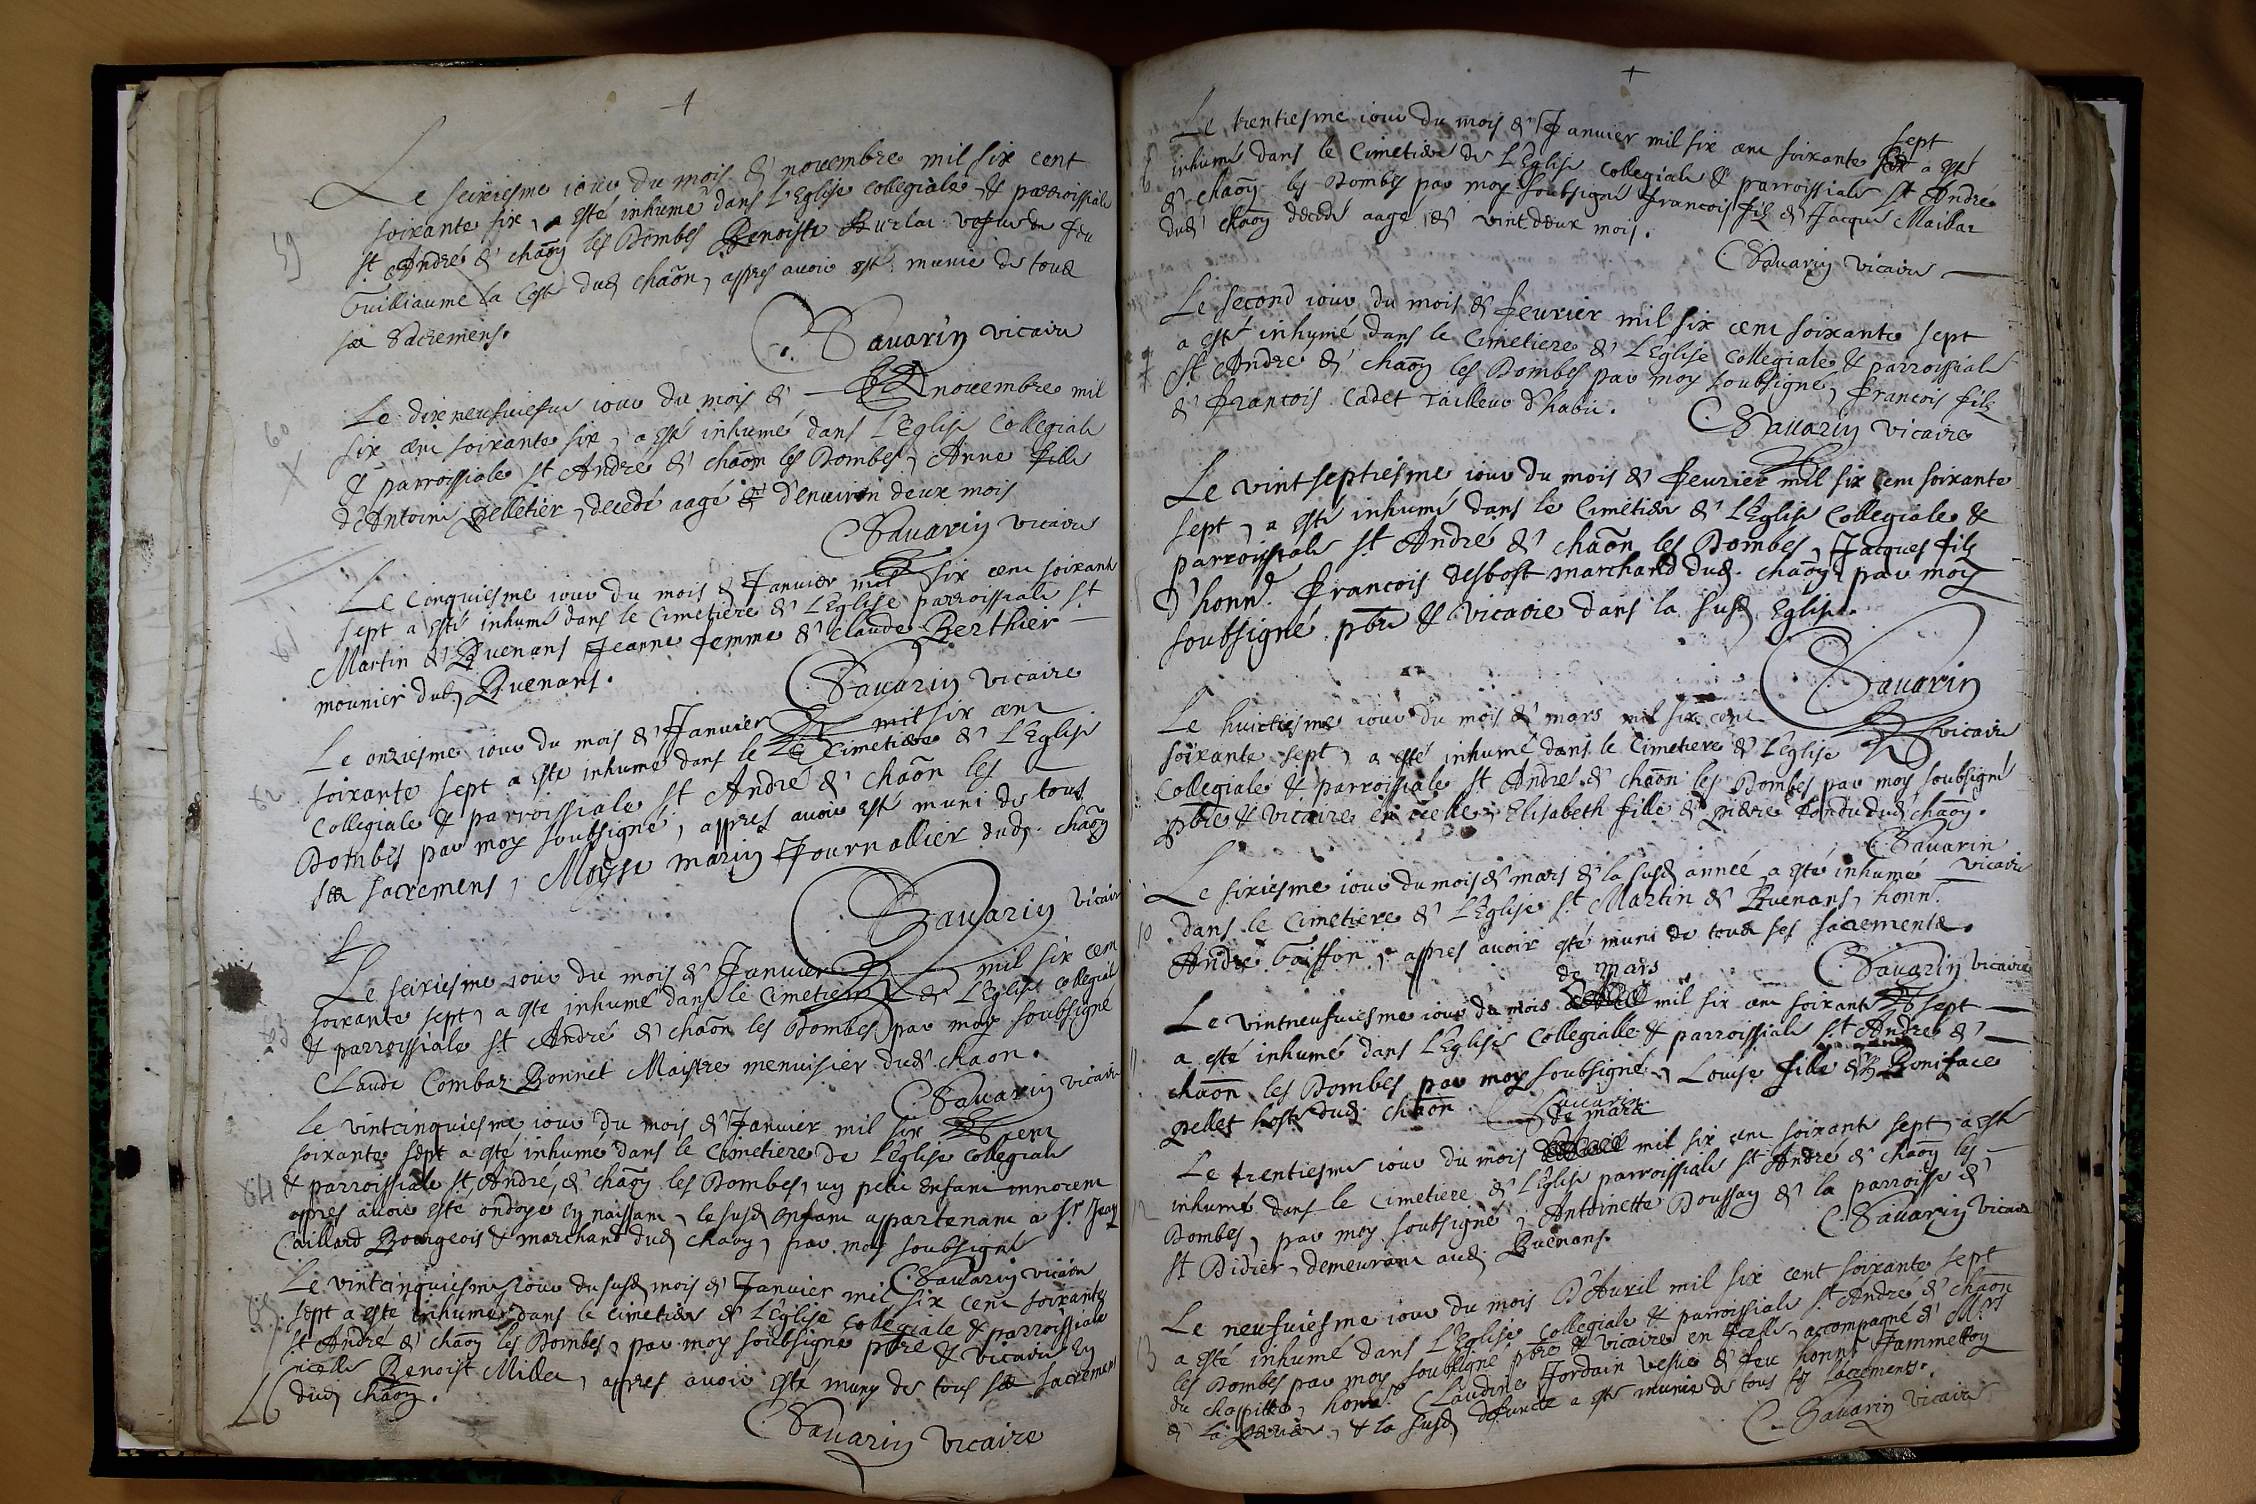 Le seiziesme iour du mois de nouembre mil six cent
soixante six, a esté inhumé dans l'Eglise collegiale & parroissiale
59
St André de chaōn les Dombes Benoiste Burlat vefue de feu
Guilliaume la Coste dud chaōn, appres auoir esté munie de tous
ses Sacremens.
Sauarin vicaire
Le dixneufuiesme iour du mois de nouembre mil
60
six cent soixante six, a esté inhumé dans l'Eglise Collegiale
& parroissiale St André de chaōn les Dombes, Anne fille
d'Antoine Pelletier, decedé aagé d'enuiron deux mois
Sauarin vicaire
Le cinquiesme iour du mois de Januier mil six cent soixante
61
sept a esté inhumé dans le Cimetiere de l'Eglise parroissiale St
Martin de Buenans Jeanne femme de claude Berthier
mounier dud Buenans.
Sauarin vicaire
Le onziesme iour du mois de Januier mil six cent
62
soixante sept a esté inhumé dans le Cimetiere de l'Eglise
Collegiale & parroissiale St André de chaōn les
Dombes par moy soubsigné, appres auoir esté muni de tous
ses sacremens, Moyse marin Journallier dud. chaōn
Sauarin vicaire
Le seiziesme iour du mois de Januier mil six cent
soixante sept, a esté inhumé dans le Cimetiere de l'Eglise collegiale
63
& parroissiale St André de chaōn les Dombes, par moy soubsigné
Claude Combaz Bonnet Maistre menuisier dud chaon.
Sauarin vicaire
Le vintcinquiesme iour du mois de Januier mil six cent
soixante sept a esté inhumé dans le Cimetiere de l'Eglise collegiale
64
& parroissiale St André, de chaōn les Dombes, un petit enfant innocent
appres auoir esté ondoyé en naissant, le susd enfant appartenant a Sr Jean
Caillard Bourgeois & marchand dud chaōn, par moy soubsigné
Sauarin vicaire
Le vintcinquiesme iour du susd mois de Januier mil six cent soixante
65
sept a esté inhumé dans le Cimetiere de l'Eglise Collegiale & parroissiale
St André de chaōn les Dombes, par moy soubsigné pbre & vicaire en
icelle Benoist Millet, appres auoir esté muny de tous ses sacremens
dud chaōn.
Sauarin vicaire
Le trentiesme iour du mois de Januier mil six cent soixante sept a esté
inhumé dans le Cimetiere de l'Eglise Collegiale & parroissiale St André
de chaōn les Dombes par moy soubsigné francois fils de Jacques Maillar
dud chaōn decedé aagé de vintdeux mois.
Sauarin vicaire
Le second iour du mois de feurier mil six cent soixante sept
a esté inhumé dans le Cimetiere de l'Eglise Collegiale & parroissiale
St André de chaōn les Dombes par moy soubsigné, francois fils
de francois Cadet Tailleur d'habit.
Sauarin vicaire
Le vintseptiesme iour du mois de feurier mil six cent soixante
sept, a esté inhumé dans le Cimetiere de l'Eglise Collegiale &
parroissiale St André de chaōn les Dombes, Jacques fils
d'honne. francois desbost marchand dud. chaōn, par moy
soubsigné pbre & vicaire dans la susd Eglise.
Sauarin
vicaire
Le huictiesme iour du mois de mars mil six cent
soixante sept, a esté inhumé dans le Cimetiere de l'Eglise
Collegiale & parroissiale St André de chaōn les Dombes par moy soubsigné
pbre & vicaire en icelle, Elisabeth fille de pierre Fondu dud chaōn.
Sauarin
vicaire
Le sixiesme iour du mois de mars de la susd année a esté inhumé
dans le Cimetiere de l'Eglise St Martin de Buenans, honn.
10
André Goiffon, appres auoir esté muni de tous ses sacements.
Sauarin vicaire
de mars
Le vintneufuiesme iour du mois mil six cent soixante sept
a esté inhumé dans l'Eglise Collegialle & parroissiale St André de
11
chaōn les Dombes par moy soubsigné, Louise fille de Boniface
pellet hoste dud. chaōn
Sauarin
de mars
Le trentiesme iour du mois mil six cent soixante sept, a esté
inhumé dans le Cimetiere de l'Eglise parroissiale St André de chaōn les
12
Dombes, par moy soubsigné, Antoinette Doussan de la parroisse de
St Didier, demeurant aud. Buenans.
Sauarin vicaire
Le neufuiesme iour du mois D'Auril mil six cent soixante sept
a esté inhumé dans l'Eglise Collegiale & parroissiale St André de chaōn
13
les Dombes par moy soubsigné pbre & vicaire en Jcelle, accompagné de Mrs
du chappitre, honne. Claudine Jordain vefue de feu honne. Jammetton
de la , & la susd defuncte a esté munie de tous ses sacremens.
Sauarin vicaire